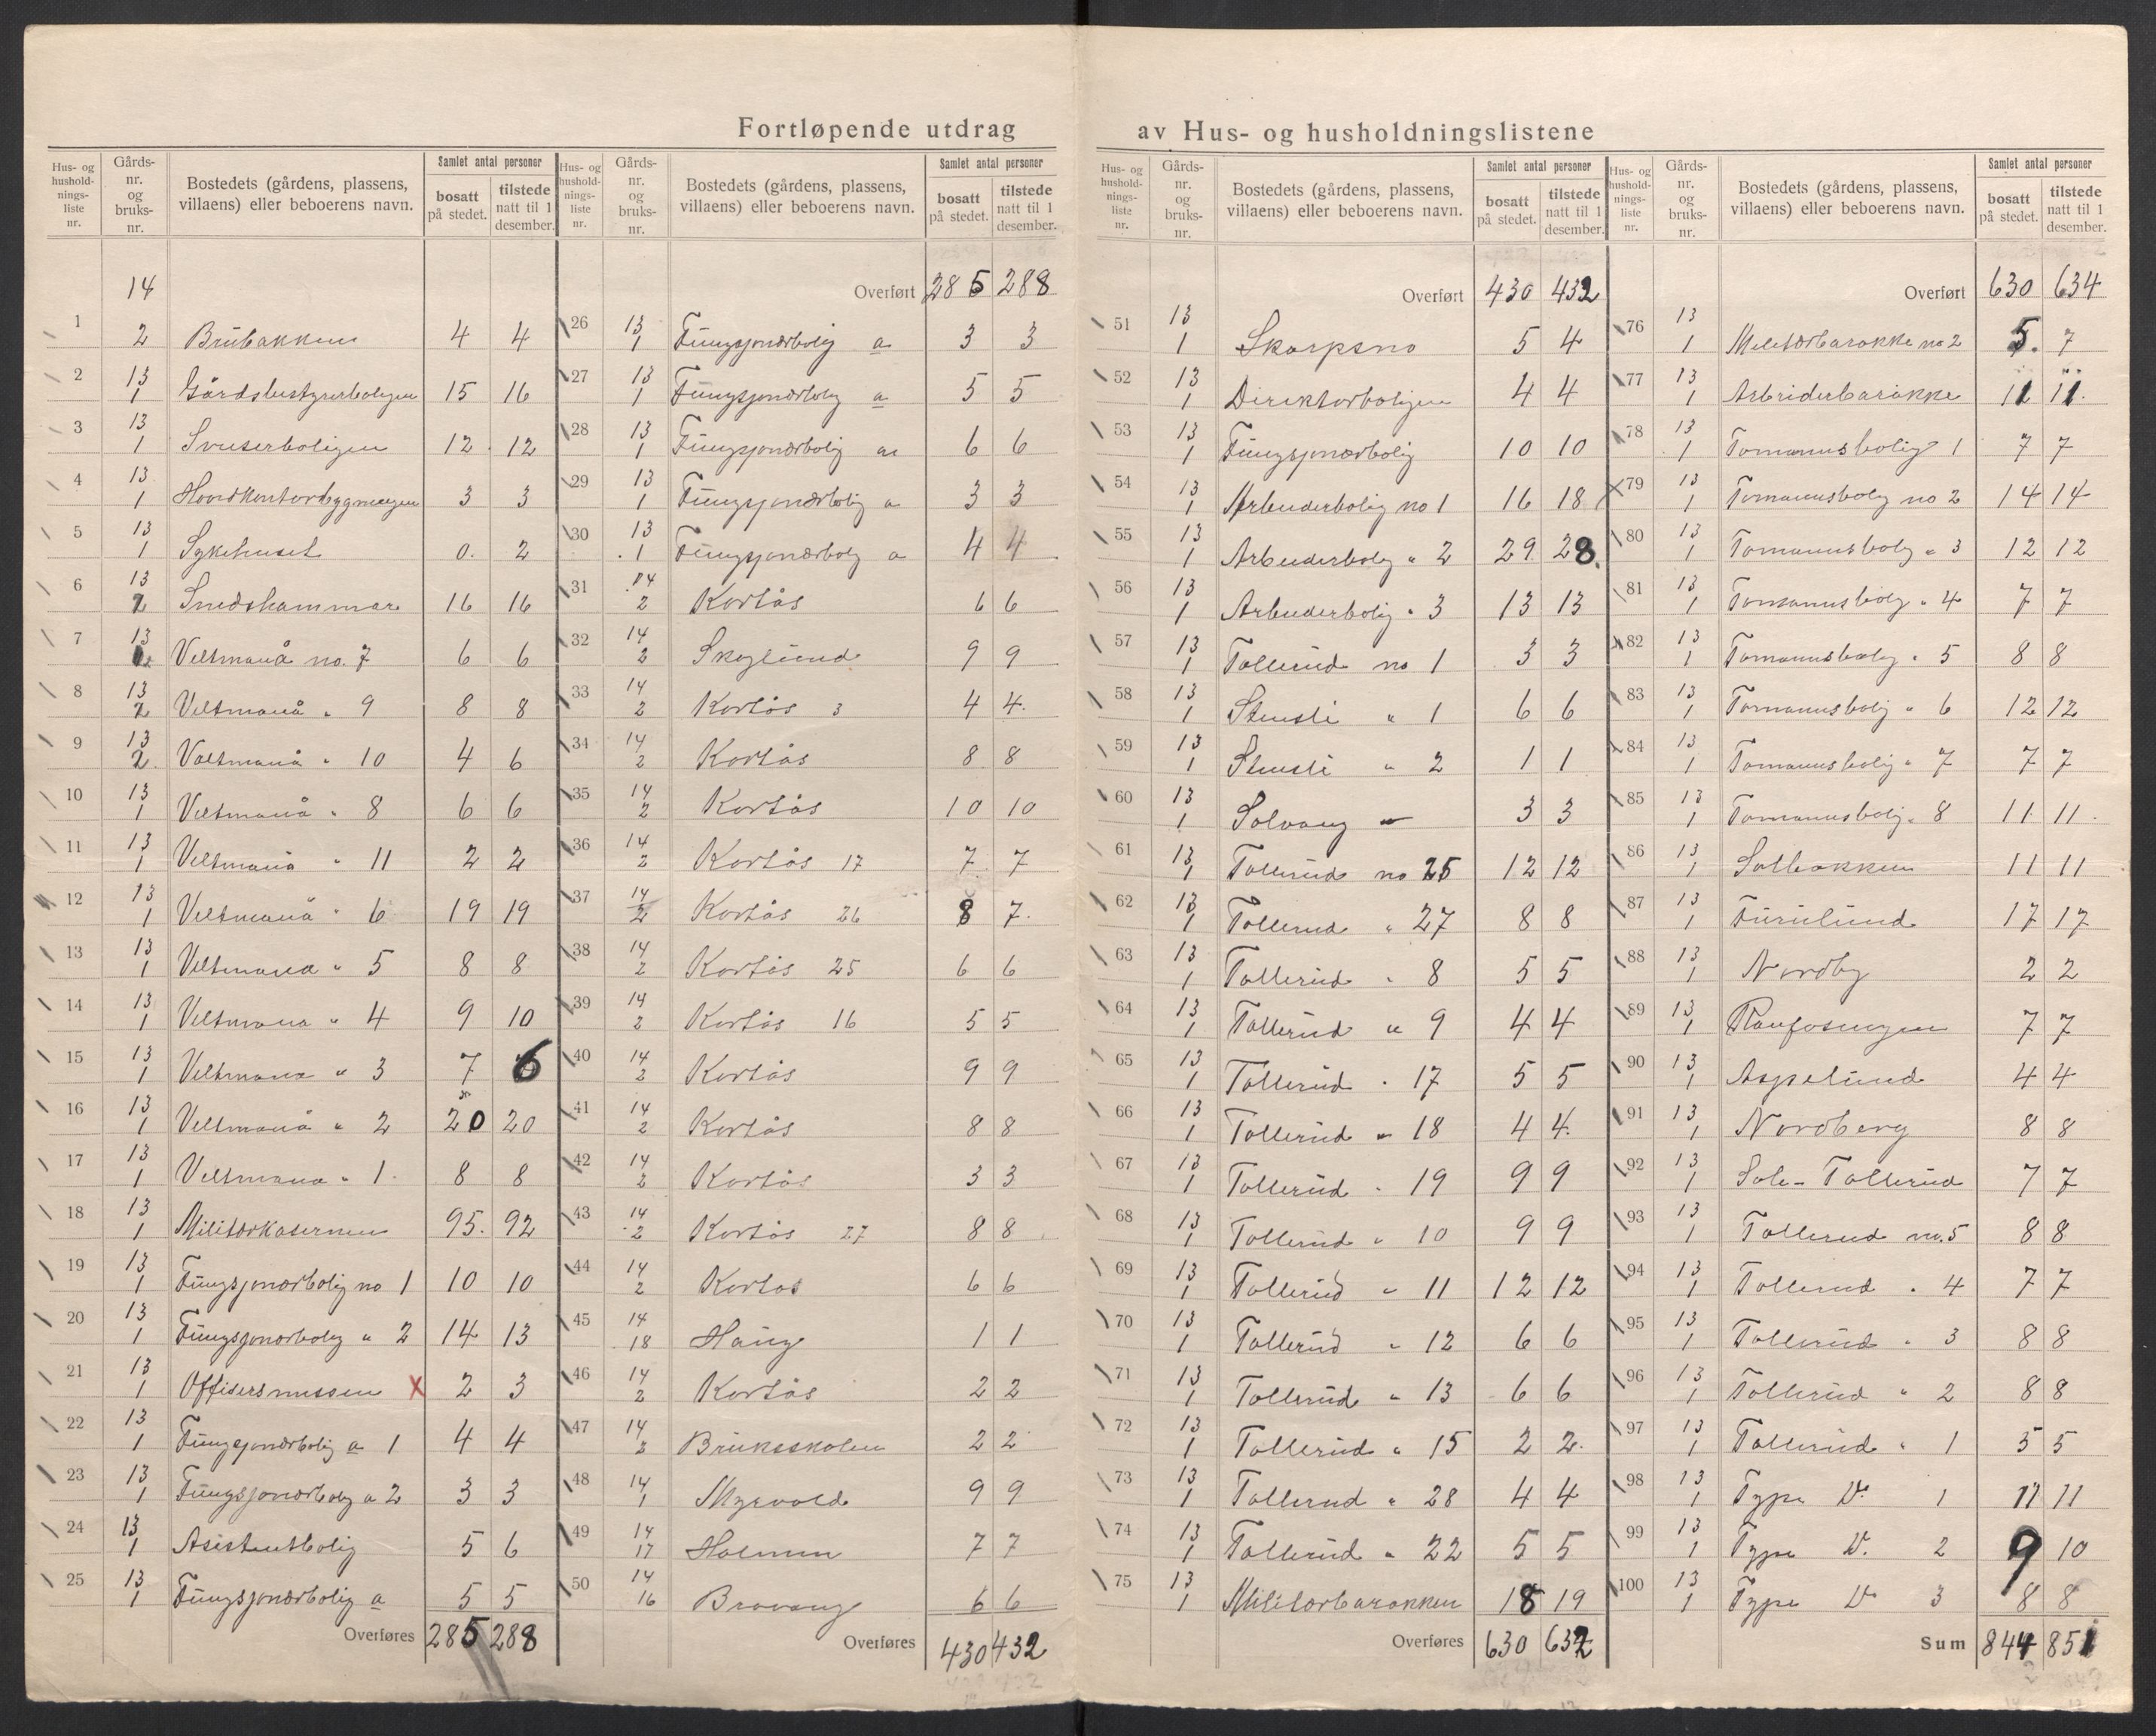 Fortløpende utdrag av Hus- og husholdningslistene
Hus- og husholdnings-liste nr. | Gårds-nr. og bruks-nr. | Bostedets (gårdens, plassens, villaens) eller beboerens navn. | Samlet antal personer bosatt på stedet. | tilstede natt til 1 desember.
1 14 2 Brubakken 4 4
2 13 1 Gårdsbestyrerboligen 15 16
3 13 1 Sveiserboligen 12 12
4 13 1 Hovedkontorbygningen 3 3
5 13 1 Sykehuset 0. 2
6 13 2 Smedshammar 16 16
7 13 Veltmanå no. 7 6 6
8 13 2 Veltmanå " 9 8 8
9 13 2 Veltmanå " 10 4 6
10 13 1 Veltmanå " 8 6 6
11 13 1 Veltmanå " 11 2 2
12 13 1 Veltmanå " 6 19 19
13 13 1 Veltmana " 5 8 8
14 13 1 Veltmana " 4 9 10
15 13 1 Veltmana " 3 7 6
16 13 1 Veltmanå " 2 20 20
17 13 1 Veltmana " 1. 8 8
18 13 1 Militærkasernen 95. 92
19 13 1 Fungsjonærbolig no 1 10 10
20 13 1 Fungsjonærbolig " 2 14 13
21 13 1 Offisersmessen X 2 3
22 13 1 Fungsjonærbolig a 1 4 4
23 13 1 Fungsjonærbolig a 2 3 3
24 13 1 Asistentbolig 5 6
25 13 1 Fungsjonærbolig a 5 5
Overføres 285 288
Hus- og husholdnings-liste nr. | Gårds-nr. og bruks-nr. | Bostedets (gårdens, plassens, villaens) eller beboerens navn. | Samlet antal personer bosatt på stedet. | tilstede natt til 1 desember.
Overført 285 288
26 13 1 Fungsjonærbolig a 3 3
27 13 1 Fungsjonærbolig a 5 5
28 13 1 Fungsjonærbolig a 6 6
29 13 1 Fungsjonærbolig a 3 3
30 13 1 Fungsjonærbolig a 4 4
31 14 2 Kortås 6 6
32 14 2 Skoglund 9 9
33 14 2 Kortås 3 4 4.
34 14 2 Kortås 8 8
35 14 2 Kortås 10 10
36 14 2 Kortås 17 7 7
37 14 2 Kortås 26 8 7.
38 14 2 Kortås 25 6 6
39 14 2 Kortås 16 5 5
40 14 2 Kortås 9 9
41 14 2 Kortås 8 8
42 14 2 Kortås 3 3
43 14 2 Kortås 27 8 8
44 14 2 Kortas 6 6
45 14 18 Haug 1 1
46 14 2 Kortås 2 2
47 14 2 Bruksskolen 2 2
48 14 1 Myrvold 9 9
49 14 17 Holmen 7 7
50 14 16 Bravang 6 6
Overføres 430 432
Hus- og husholdnings-liste nr. | Gårds-nr. og bruks-nr. | Bostedets (gårdens, plassens, villaens) eller beboerens navn. | Samlet antal personer bosatt på stedet. | tilstede natt til 1 desember.
Overført 430 432
51 13 1 Skarpsno 5 4
52 13 1 Direktørboligen 4 4
53 13 1 Fungsjonærbolig 10 10
54 13 1 Arbeiderbolig no 1 16 18
55 13 1 Arbeiderbolig " 2 29 28.
56 13 1 Arbeiderbolig " 3 13 13
57 13 1 Tollerud no 1 3 3
58 13 1 Stensli " 1 6 6
59 13 1 Stensli " 2 1 1
60 13 1 Solvang 3 3
61 13 1 Tollerud no 25 12 12
62 13 1 Tollerud " 27 8 8
63 13 1 Tollerud " 8 5 5
64 13 1 Tollerud " 9 4 4
65 13 1 Tollerud " 17 5 5
66 13 1 Tollerud " 18 4 4.
67 13 1 Tollerud " 19 9 9
68 13 1 Tollerud " 10 9 9
69 13 1 Tollerud " 11 12 12
70 13 1 Tollerud " 12 6 6
71 13 1 Tollerud " 13 6 6
72 13 1 Tollerud " 15 2 2.
73 13 1 Tollerud " 28 4 4
74 13 1 Tollerud " 22 5 5
75 13 1 Militærbarakken 18 19
Overføres 630 632
Hus- og husholdnings-liste nr. | Gårds-nr. og bruks-nr. | Bostedets (gårdens, plassens, villaens) eller beboerens navn. | Samlet antal personer bosatt på stedet. | tilstede natt til 1 desember.
Overført 630 634
76 13 1 Militærbarakke no 2 5. 7
77 13 1 Arbeiderbarakke 11 11.
78 13 1 Tomannsbolig 1 7 7
79 13 1 Tomannsbolig no 2 14 14
80 13 1 Tomannsbolig " 3 12 12
81 13 1 Tomannsbolig " 4 7 7
82 13 1 Tomannsbolig " 5 8 8
83 13 1 Tomannsbolig " 6 12 12
84 13 1 Tomannsbolig " 7 7 7
85 13 1 Tomannsbolig " 8 11 11
86 13 1 Solbakken 11 11
87 13 1 Furulund 17 17
88 13 1 Nordby 2 2
89 13 1 Raufosengen 7 7
90 13 1 Aspelund 4 4
91 13 1 Nordberg 8 8
92 13 1 Sole-Tollerud 7 7
93 13 1 Tollerud no.5 8 8
94 13 1 Tollerud " 4 7 7
95 13 1 Tollerud " 3 8 8
96 13 1 Tollerud " 2 8 8
97 13 1 Tollerud " 1 5 5
98 13 1 Type V. 1 11 11
99 13 1 Type V. 2 9 10
100 13 1 Type V 3 8 8
Sum 844 851